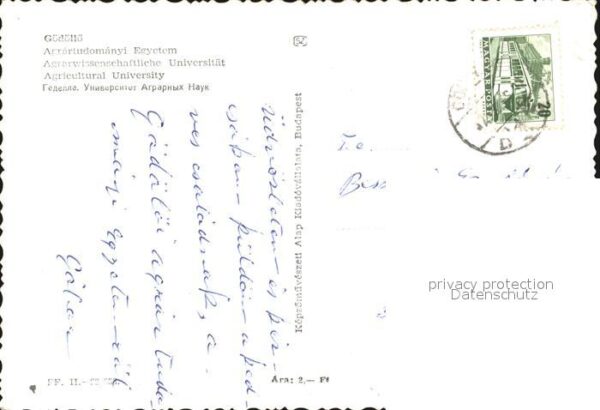 Gödöllő
Agrártudományi Egyetem
Agrarwissenschaftliche Universität
Agricultural University
Геделлэ. Университет Аграрных Наук
MAGYAR POSTA
20
D
Képzőművészeti Alap Kiadóvállalata, Budapest
Üdvözletem – és kéz-
csókom – küldöm a ked-
ves családnak, a
Gödöllői agrár tudo
mányi egyetemről
Gábor
privacy protection
Datenschutz
Ára: 2,— Ft